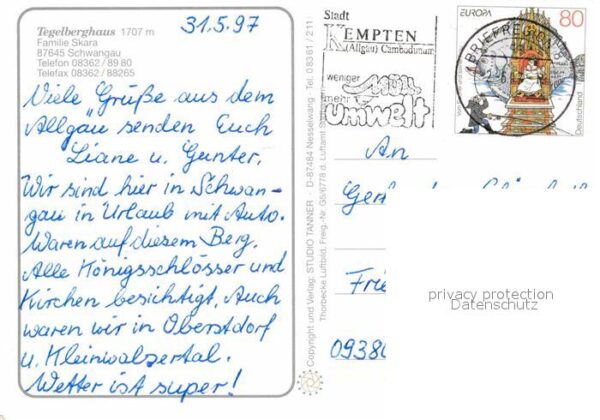 31.5.97
Tegelberghaus 1707 m
Familie Skara
87645 Schwangau
Telefon 08362 / 89 80
Telefax 08362 / 88265
Viele Grüße aus dem
Allgäu senden Euch
Liane u. Gunter.
Wir sind hier in Schwan-
gau in Urlaub mit Auto.
Waren auf diesem Berg.
Alle Königsschlösser und
Kirchen besichtigt. Auch
waren wir in Oberstdorf
u. Kleinwalsertal.
Wetter ist super!
Copyright und Verlag: STUDIO TANNER · D-87484 Nesselwang · Tel. 08361 / 211
Thorbecke Luftbild, Freig.-Nr. G5/6778 d. Luftamt
Stadt
KEMPTEN
(Allgäu) Cambodunum
weniger
Müll
mehr
Umwelt
BRIEFREGION
EUROPA
80
Deutschland
An
Ger
Frie
0938
privacy protection
Datenschutz